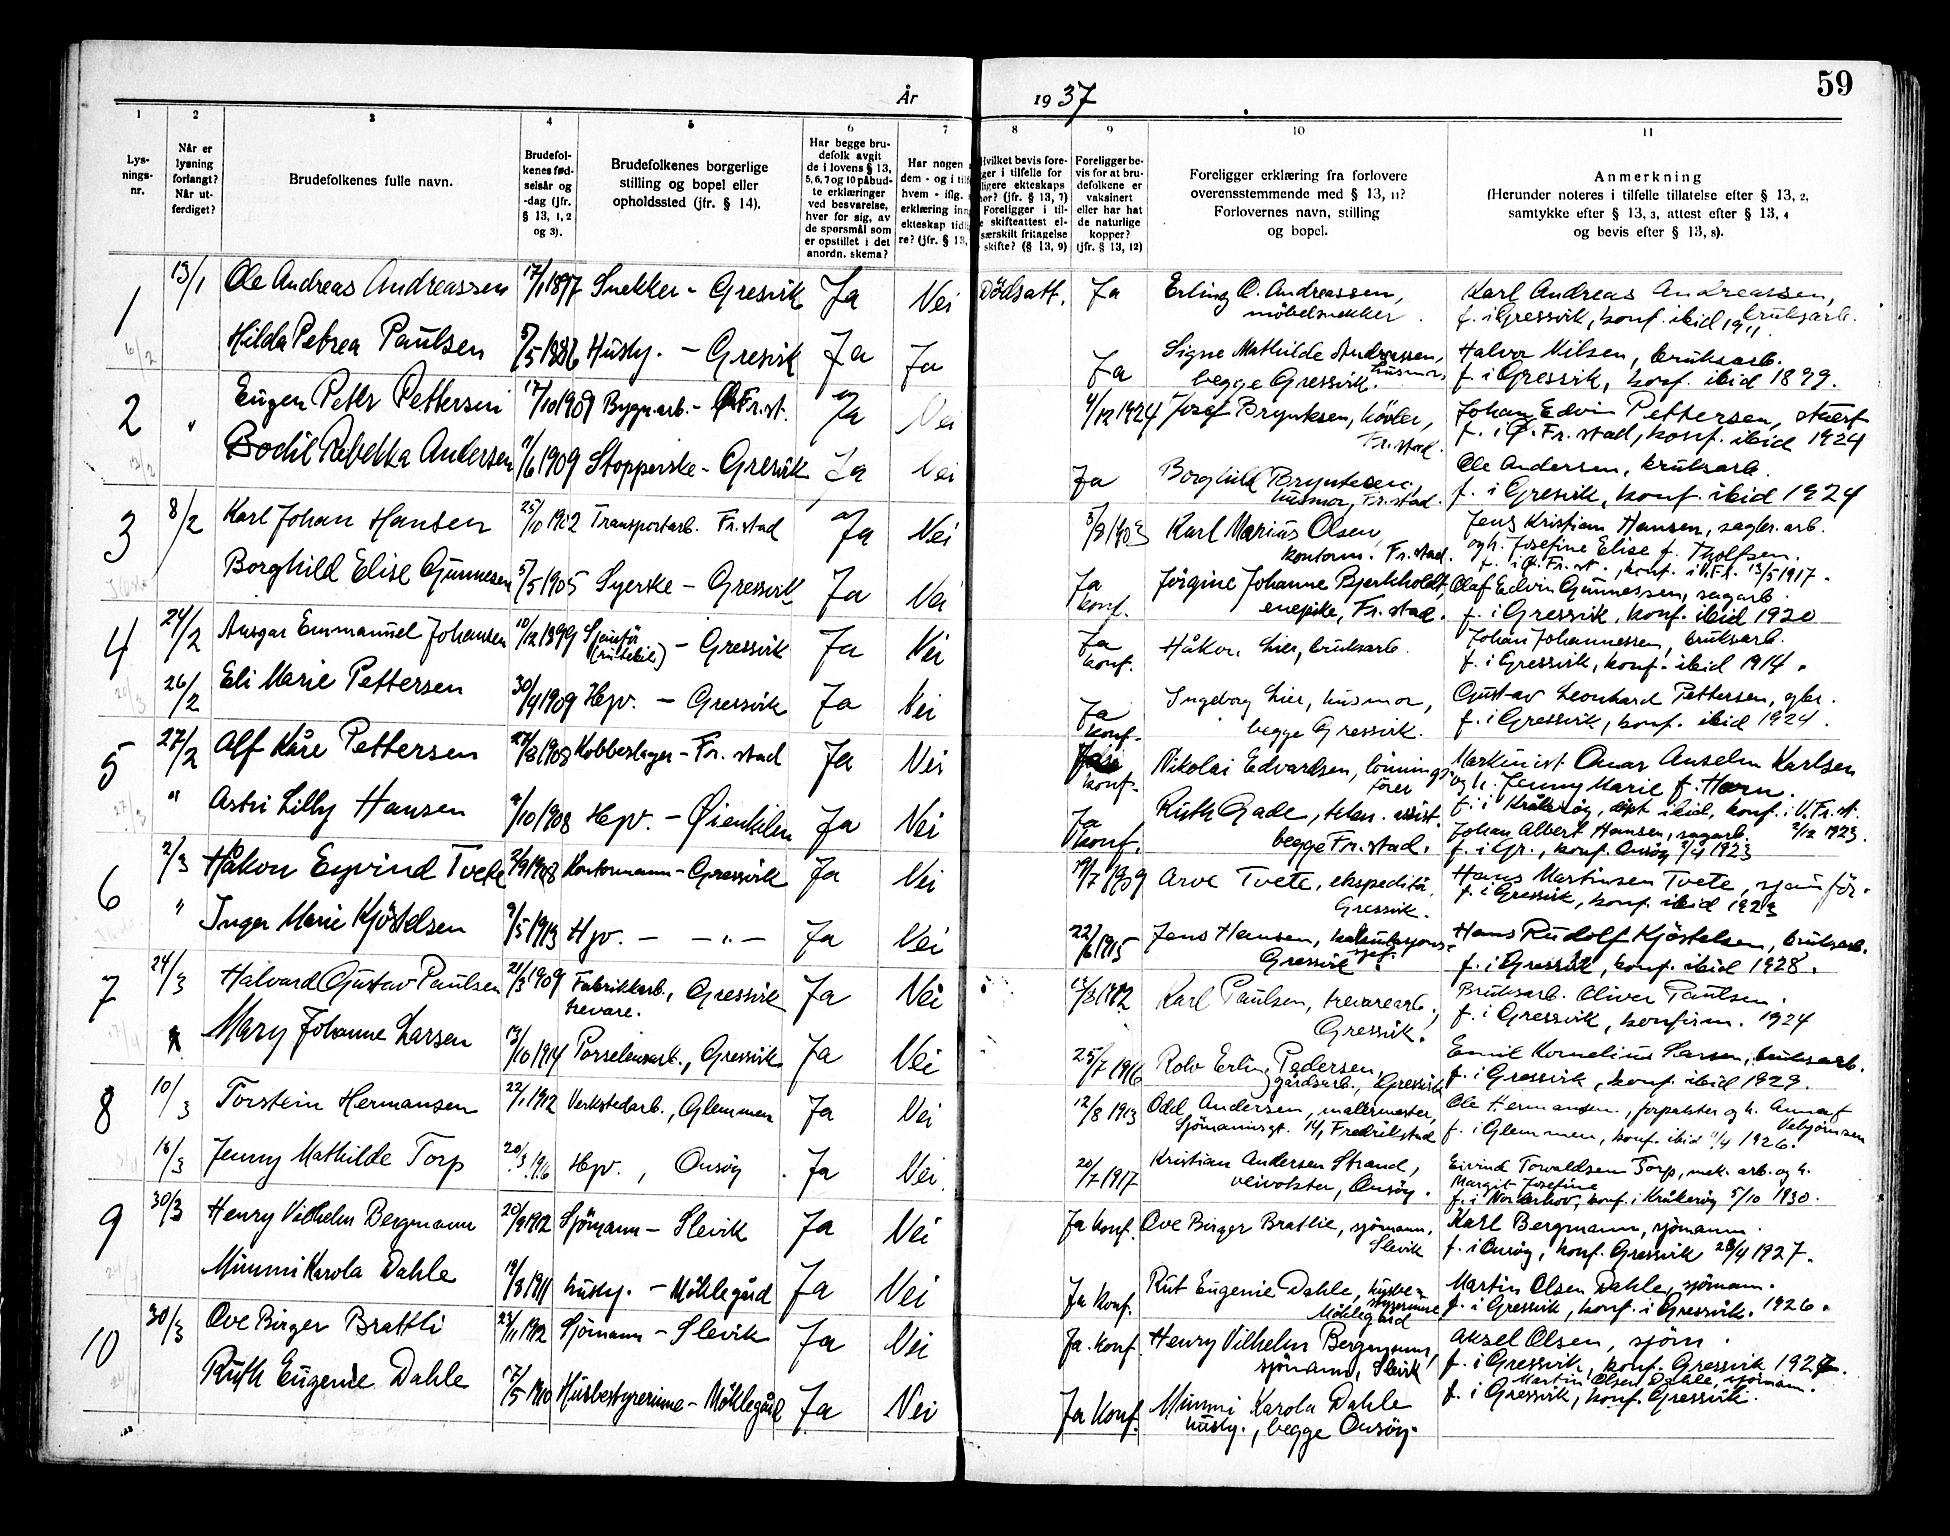 59
År 1937
1
2
3
4
5
6
7
8
9
10
11
Lys-
nings-
nr.
Når er
lysning
forlangt?
Når ut-
ferdiget?
Brudefolkenes fulle navn.
Brudefol-
kenes fød-
selsår og
-dag (jfr.
§ 13, 1, 2
og 3).
Brudefolkenes borgerlige
stilling og bopel eller
opholdssted (jfr. § 14).
Har begge bru-
defolk avgit
de i lovens § 13,
5, 6, 7 og 10 påbud-
te erklæringer
ved besvarelse,
hver for sig, av
de spørsmål som
er opstillet i det
anordn. skema?
Har nogen
dem - og i tilf
hvem - iflg.
erklæring inn
ekteskap tidl
re? (jfr. § 13,
Hvilket bevis fore-
ger i tilfelle for
ligere ekteskaps
hør? (jfr. § 13, 7)
Foreligger i til-
e skifteattest el-
særskilt fritagelse
skifte? (§ 13, 9)
Foreligger be-
vis for at bru-
defolkene er
vaksinert
eller har hat
de naturlige
kopper?
(jfr. § 13, 12)
Foreligger erklæring fra forlovere
overensstemmende med § 13, 11?
Forlovernes navn, stilling
og bopel.
Anmerkning
(Herunder noteres i tilfelle tillatelse efter § 13, 2,
samtykke efter § 13, 3, attest efter § 13, 4
og bevis efter § 13, 8).
1 13/1 Ole Andreas Andreassen 17/1 1897 Snekker - Gresvik Ja Nei Dödsatt. Ja Erling O. Andreassen, Karl Andreas Andreassen,
möbelsnekker f. i Gressvik, konf. ibid 1911 bruksarb.
6/2 Hilda Petrea Paulsen 5/5 1886 Husby. - Gresvik Ja Ja Ja Signe Mathilde Andreassen, Halvor Nilsen, bruksarb.
husmor, begge Gressvik. f. i Gressvik, konf. ibid 1899.
2 Eugen Peter Pettersen 17/10 1909 Bygn.arb. - Fr.st. Ja Nei 4/12 1924 Josef Bryntesen, hövler, Johan Edvin Pettersen, stuert
" Fr.stad. f. i Ø. Fr.stad, konf. ibid 1924
Bodil Rebekka Andersen 1/6 1909 Stopperske - Gresvik Ja Nei Ja Borghild Bryntesen, Ole Andersen, bruksarb.
husmor, Fr.stad. f. i Gresvik, konf. ibid 1924
3 8/2 Karl Johan Hansen 25/10 1902 Transportarb. Fr.stad Ja Nei 5/8 1903 Karl Marius Olsen, Jens Kristian Hansen, sagbr.arb.
kontorm. Fr.stad. og h. Josefine Elise f. Tholfsen.
f. i Ø.Fr.st., konf. i V.Fr. 13/5 1917.
Borghild Elise Gunnesen 5/5 1905 Syerske - Gressvik Ja Nei Ja konf. Jörgine Johanne Bjerkholdt, Olaf Edvin Gunnessen, sagarb.
enepike, Fr.stad. f. i Gressvik, konf. ibid 1920
4 24/2 Ansgar Emmanuel Johansen 10/12 1899 Sjauför (rutebil) - Gressvik Ja Nei Ja konf. Håkon Lier, bruksarb. Johan Johannessen, bruksarb.
f. i Gressvik, konf. ibid 1914.
26/2 Eli Marie Pettersen 30/9 1909 Hjv. - Gressvik Ja Nei Ja konf. Ingeborg Lier, husmor, Gustav Leonhard Pettersen, gbr.
begge Gressvik. f. i Gressvik, konf. ibid 1924.
5 27/2 Alf Kåre Pettersen 27/8 1908 Kobberslager - Fr.stad Ja Nei konf. Nikolai Edvardsen, Maskinist Oscar Anselm Karlsen
og h. Jenny Marie f. Horn.
f. i Kråkeröy, döpt ibid, konf. i V.Fr.st.
" Astri Lilly Hansen 9/10 1908 Hjv. - Øienkilen Ja Nei Ja konf. Ruth Gade, assist. Johan Albert Hansen, sagarb. 2/12 1923.
27/3 begge Fr.stad. f. i Gr., konf. Onsöy 2/4 1923
6 2/3 Håkon Eyvind Tvete 2/9 1908 Kontormann - Gressvik Ja Nei 19/7 1909 Arve Tvete, ekspeditör, Hans Martinsen Tvete, sjauför.
Gressvik. f. i Gressvik, konf. ibid 1923
" Inger Marie Kjöstelsen 9/5 1913 Hjv. - - " - Ja Nei 22/6 1915 Jens Hansen, Hans Rudolf Kjöstelsen, bruksarb.
Gressvik. f. i Gressvik, konf. ibid 1928.
7 24/3 Halvard Gustav Paulsen 21/3 1909 Fabrikkarb., Gressvik Ja Nei 13/8 1912 Karl Paulsen, trevarearb., Bruksarb. Oliver Paulsen.
trevare. Gressvik. f. i Gressvik, konfirm. 1924
Mary Johanne Larsen 13/10 1914 Porselensarb., Gressvik Ja Nei 25/7 1916 Rolv Erling Pedersen, Emil Kornelius Larsen, bruksarb.
gårdsarb., Gressvik f. i Gressvik, konf. ibid 1929.
8 10/3 Torstein Hermansen 22/1 1912 Verkstedarb., Glemmen Ja Nei 12/8 1913 Odd Andersen, malermester, Ole Hermansen, forpakter og h. Anna f.
Sjömannsgt. 14, Fredrikstad Vebjörnsen f. i Glemmen, konf. ibid 11/4 1926.
18/3 Jenny Mathilde Torp 20/3 1916 Hjv., Onsöy. Ja Nei. 20/7 1917 Kristian Andersen Strand, Eivind Torvaldsen Torp, mek. arb. og h.
veivokter, Onsöy. Margit Josefine
f. i Norderhov, konf. i Kråkeröy 5/10 1930.
9 30/3 Henry Vilhelm Bergmann 20/9 1912 Sjömann - Slevik Ja Nei Ja konf. Ove Birger Brattli, sjömann, Karl Bergmann, sjömann.
Slevik f. i Onsöy, konf. Gressvik 28/4 1927.
Mimmi Karola Dahle 19/8 1911 husby. - Möklegård Ja Nei Ja konf. Rut Eugenie Dahle, husbe-styrerinne Martin Olsen Dahle, sjömam.
Möklegård f. i Gressvik, konf. i Gressvik. 1926.
10 30/3 Ove Birger Brattli 23/11 1912 Sjömann - Slevik Ja Nei Ja konf. Henry Vilhelm Bergmann, Aksel Olsen, sjöm.
sjömann, Slevik f. i Gressvik, konf. Gressvik 1927.
Ruth Eugenie Dahle 17/5 1910 Husbestyrerinne - Möklegård Ja Nei Ja konf. Mimmi Karola Dahle Martin Olsen Dahle, sjömam.
husby., begge Onsöy. f. i Gressvik, konf. Gressvik.